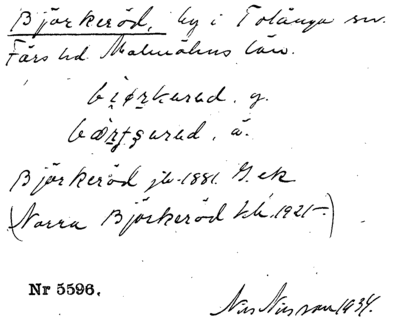 Björkeröd, by i Tolånga sn.
Färs hd. Malmöhus län.
Björkeröd jb. 1881. G. ek
(Norra Björkeröd kh. 1921-)
Nr 5596.
Nils Nilsson 1934.